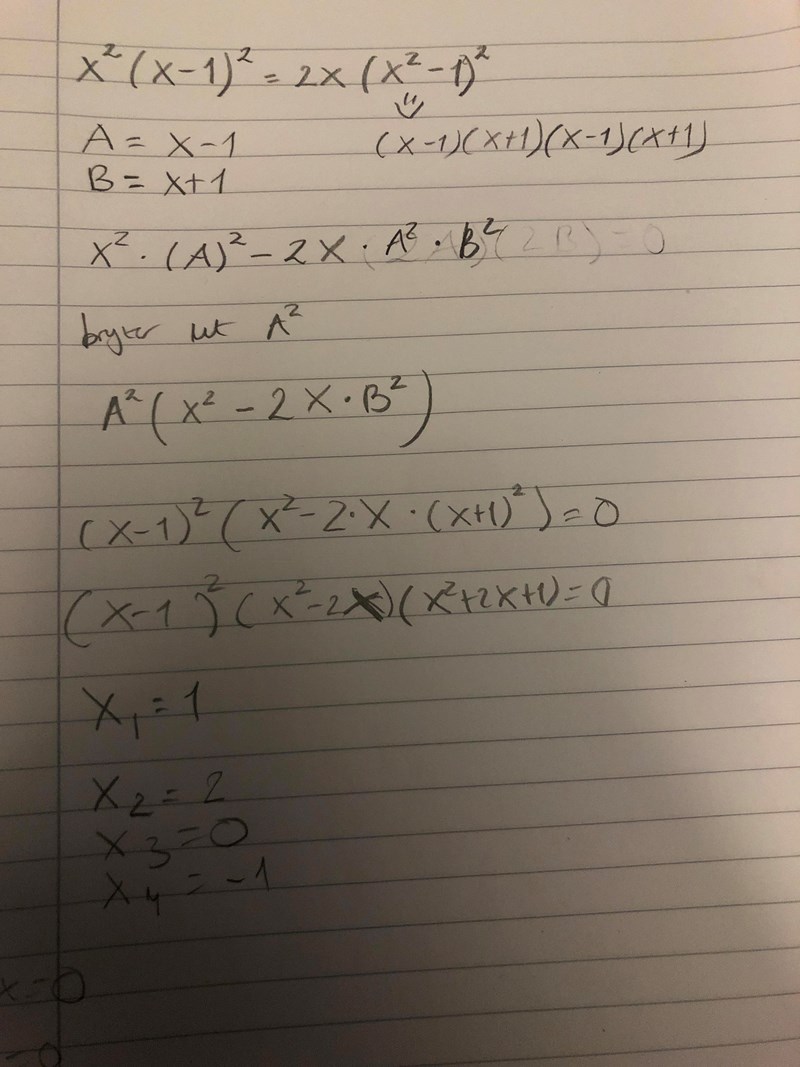 x²(x-1)² = 2x(x²-1)²
A = x-1 (x-1)(x+1)(x-1)(x+1)
B = x+1
x² · (A)² - 2x · A² · B²
bryter ut A²
A²(x² - 2x · B²)
(x-1)²(x² - 2·x · (x+1)²) = 0
(x-1)²(x²-2x)(x²+2x+1) = 0
x₁ = 1
x₂ = 2
x₃ = 0
x₄ = -1
x = 0